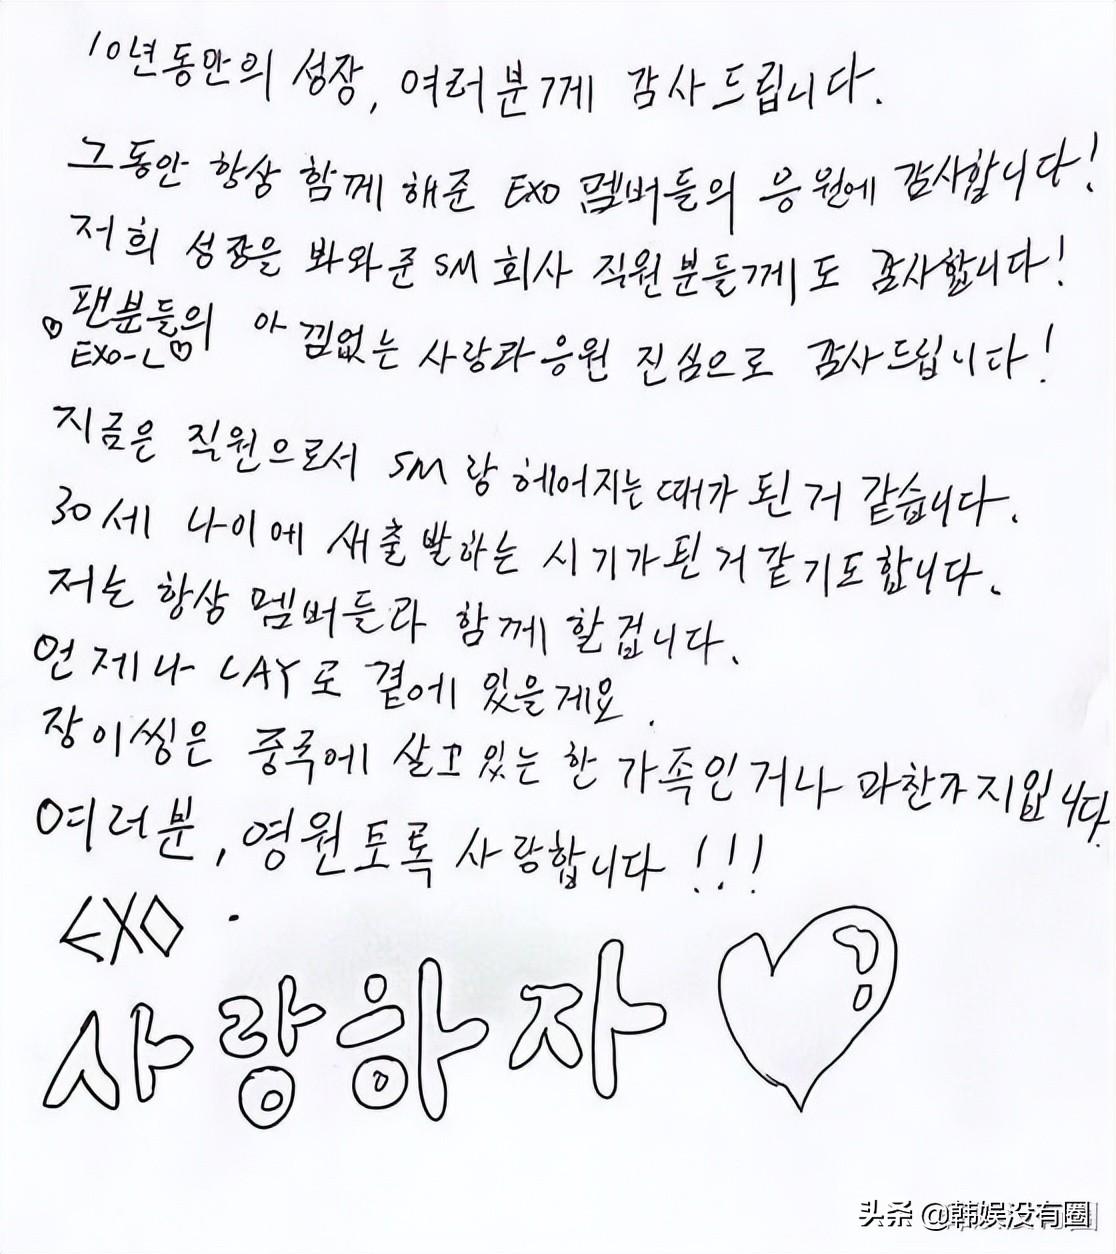 10년동안의 성장, 여러분께 감사드립니다.
그동안 항상 함께 해준 EXO 멤버들의 응원에 감사합니다!
저희 성장을 봐와준 SM 회사 직원분들께도 감사합니다!
♡팬분들의 아낌없는 사랑과 응원 진심으로 감사드립니다!
EXO-L♡
지금은 직원으로서 SM랑 헤어지는 때가 된 거 같습니다.
30세 나이에 새출발하는 시기가 된 거 같기도 합니다.
저는 항상 멤버들과 함께 할겁니다.
언제나 LAY로 곁에 있을게요.
장이씽은 중국에 살고있는 한 가족인거나 마찬가지입니다.
여러분, 영원토록 사랑합니다!!!
EXO.
사랑하자♡
头条 @韩娱没有圈